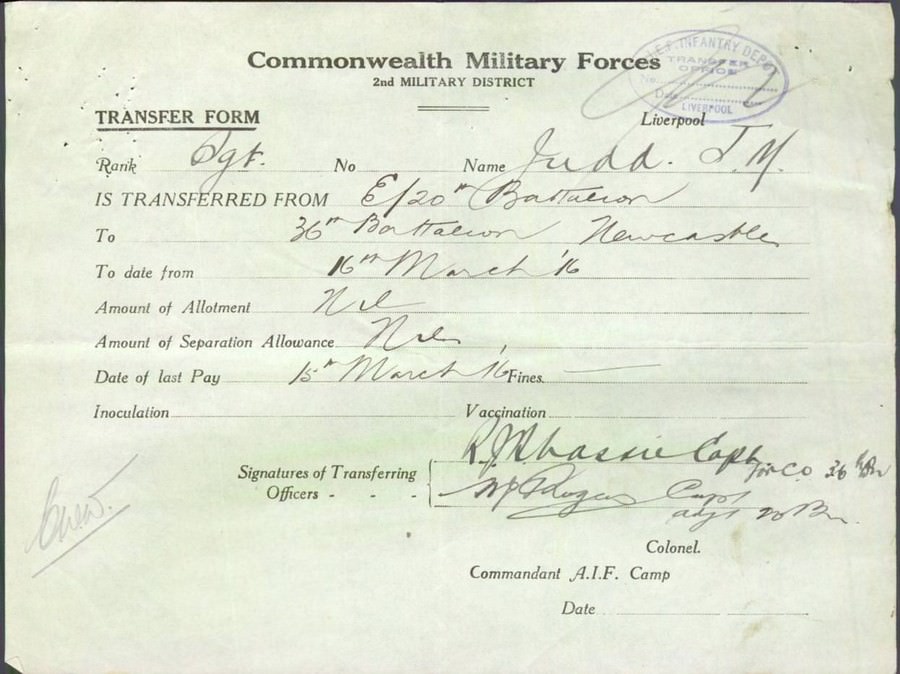 Commonwealth Military Forces
2nd MILITARY DISTRICT
A.I.F. INFANTRY DEPOT
TRANSFER OFFICE
No.
Date
LIVERPOOL
TRANSFER FORM
Liverpool
Rank Sgt. No Name Judd. J.M.
IS TRANSFERRED FROM E/20th Battalion
To 36th Battalion Newcastle
To date from 16th March '16
Amount of Allotment Nil
Amount of Separation Allowance Nil
Date of last Pay 15th March '16 Fines —
Inoculation Vaccination
Signatures of Transferring
Officers - - -
Capt for C.O. 36th Bn
Rogers Capt
adjt 20 Bn
Colonel.
Commandant A.I.F. Camp
Date